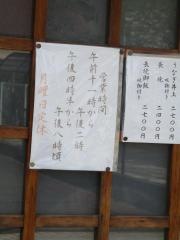 営業時間
午前十一時から
午後二時
午後四時半から
午後八時頃
月曜日定休
うなぎ丼上 二七〇〇円
吸物付き
長焼 二四〇〇円
長焼御飯 二七〇〇円
吸物付き